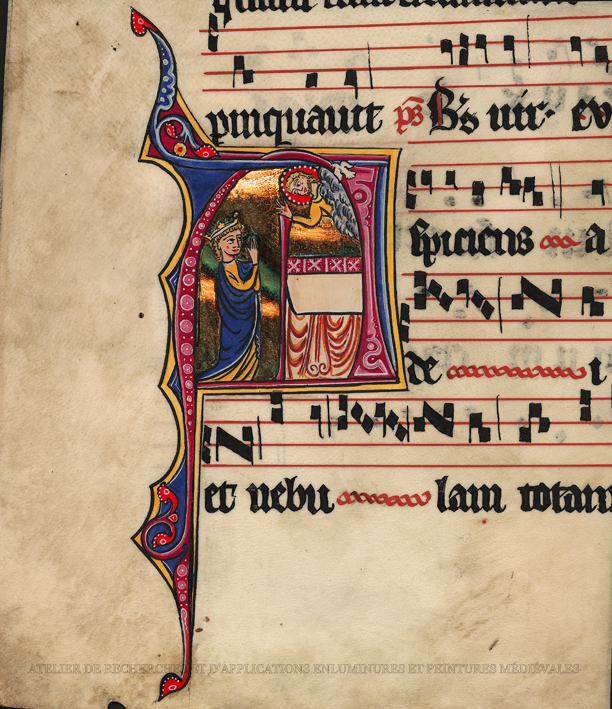 pinquauit ps B's uir. ev
Aspiciens a
de i
et nebu lam totam
ATELIER DE RECHERCHES ET D'APPLICATIONS ENLUMINURES ET PEINTURES MÉDIÉVALES